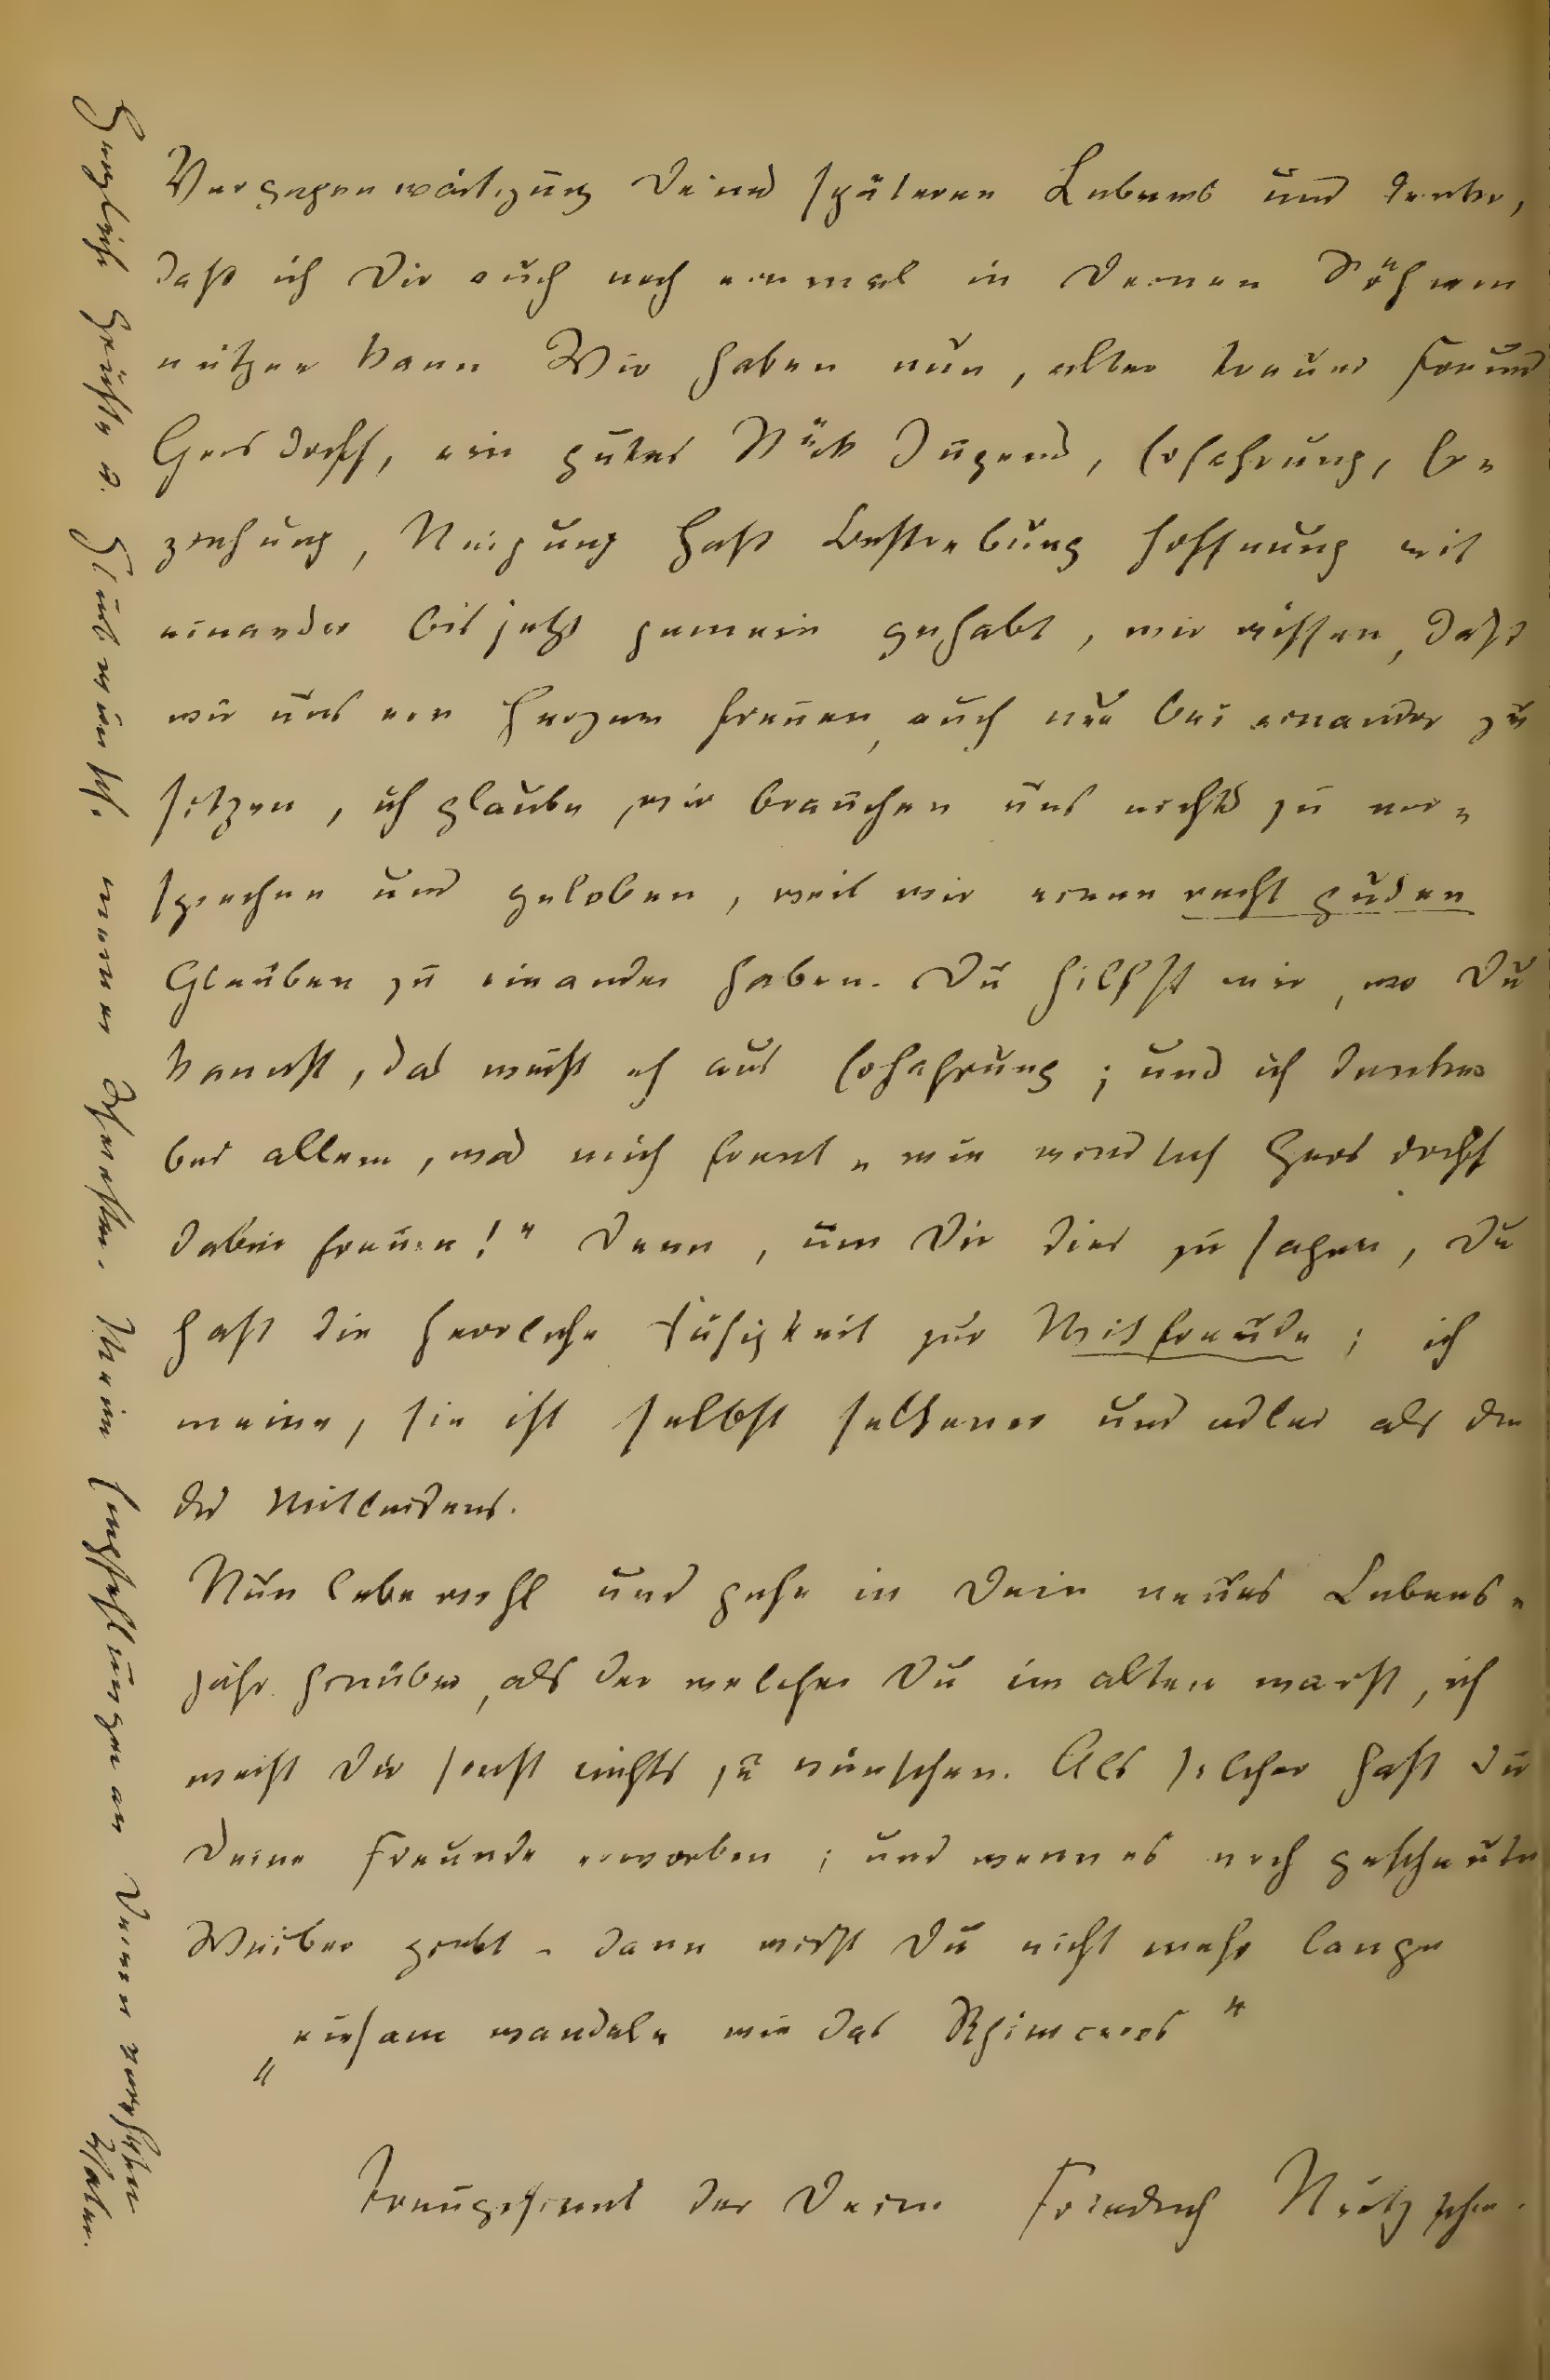 Vergegenwärtigung Deines späteren Lebens und denke,
daß ich Dir auch noch einmal in Deinen Söhnen
nützen kann Wir haben nun, alter treuer Freund
Gersdorff, ein gutes Stück Jugend, Erfahrung, Er-
ziehung, Neigung Haß Bestrebung Hoffnung mit
einander bis jetzt gemein gehabt, wir wissen, daß
wir uns von Herzen freuen, auch nur bei einander zu
sitzen, ich glaube, wir brauchen uns nichts zu ver-
sprechen und geloben, weil wir einen recht guten
Glauben zu einander haben. Du hilfst mir, wo Du
kannst, das weiß ich aus Erfahrung; und ich denke
bei allem, was mich freut „wie wird sich Gersdorff
dabei freuen!“ Denn, um Dir dies zu sagen, Du
hast die herrliche Fähigkeit zur Mitfreude; ich
meine, sie ist selbst seltener und edler als die
des Mitleidens.
Nun lebe wohl und gehe in Dein neues Lebens-
jahr hinüber, als der welcher Du im alten warst, ich
weiß Dir sonst nichts zu wünschen. Als solcher hast Du
Deine Freunde erworben; und wenn es noch gescheute
Weiber giebt - dann wirst Du nicht mehr lange
„einsam wandeln wie das Rhinoceros“
Treugesinnt der Deine Friedrich Nietzsche.
Herzliche Grüße u. Glückwünsche meiner Schwester. Meine Empfehlungen an Deinen verehrten
Vater.